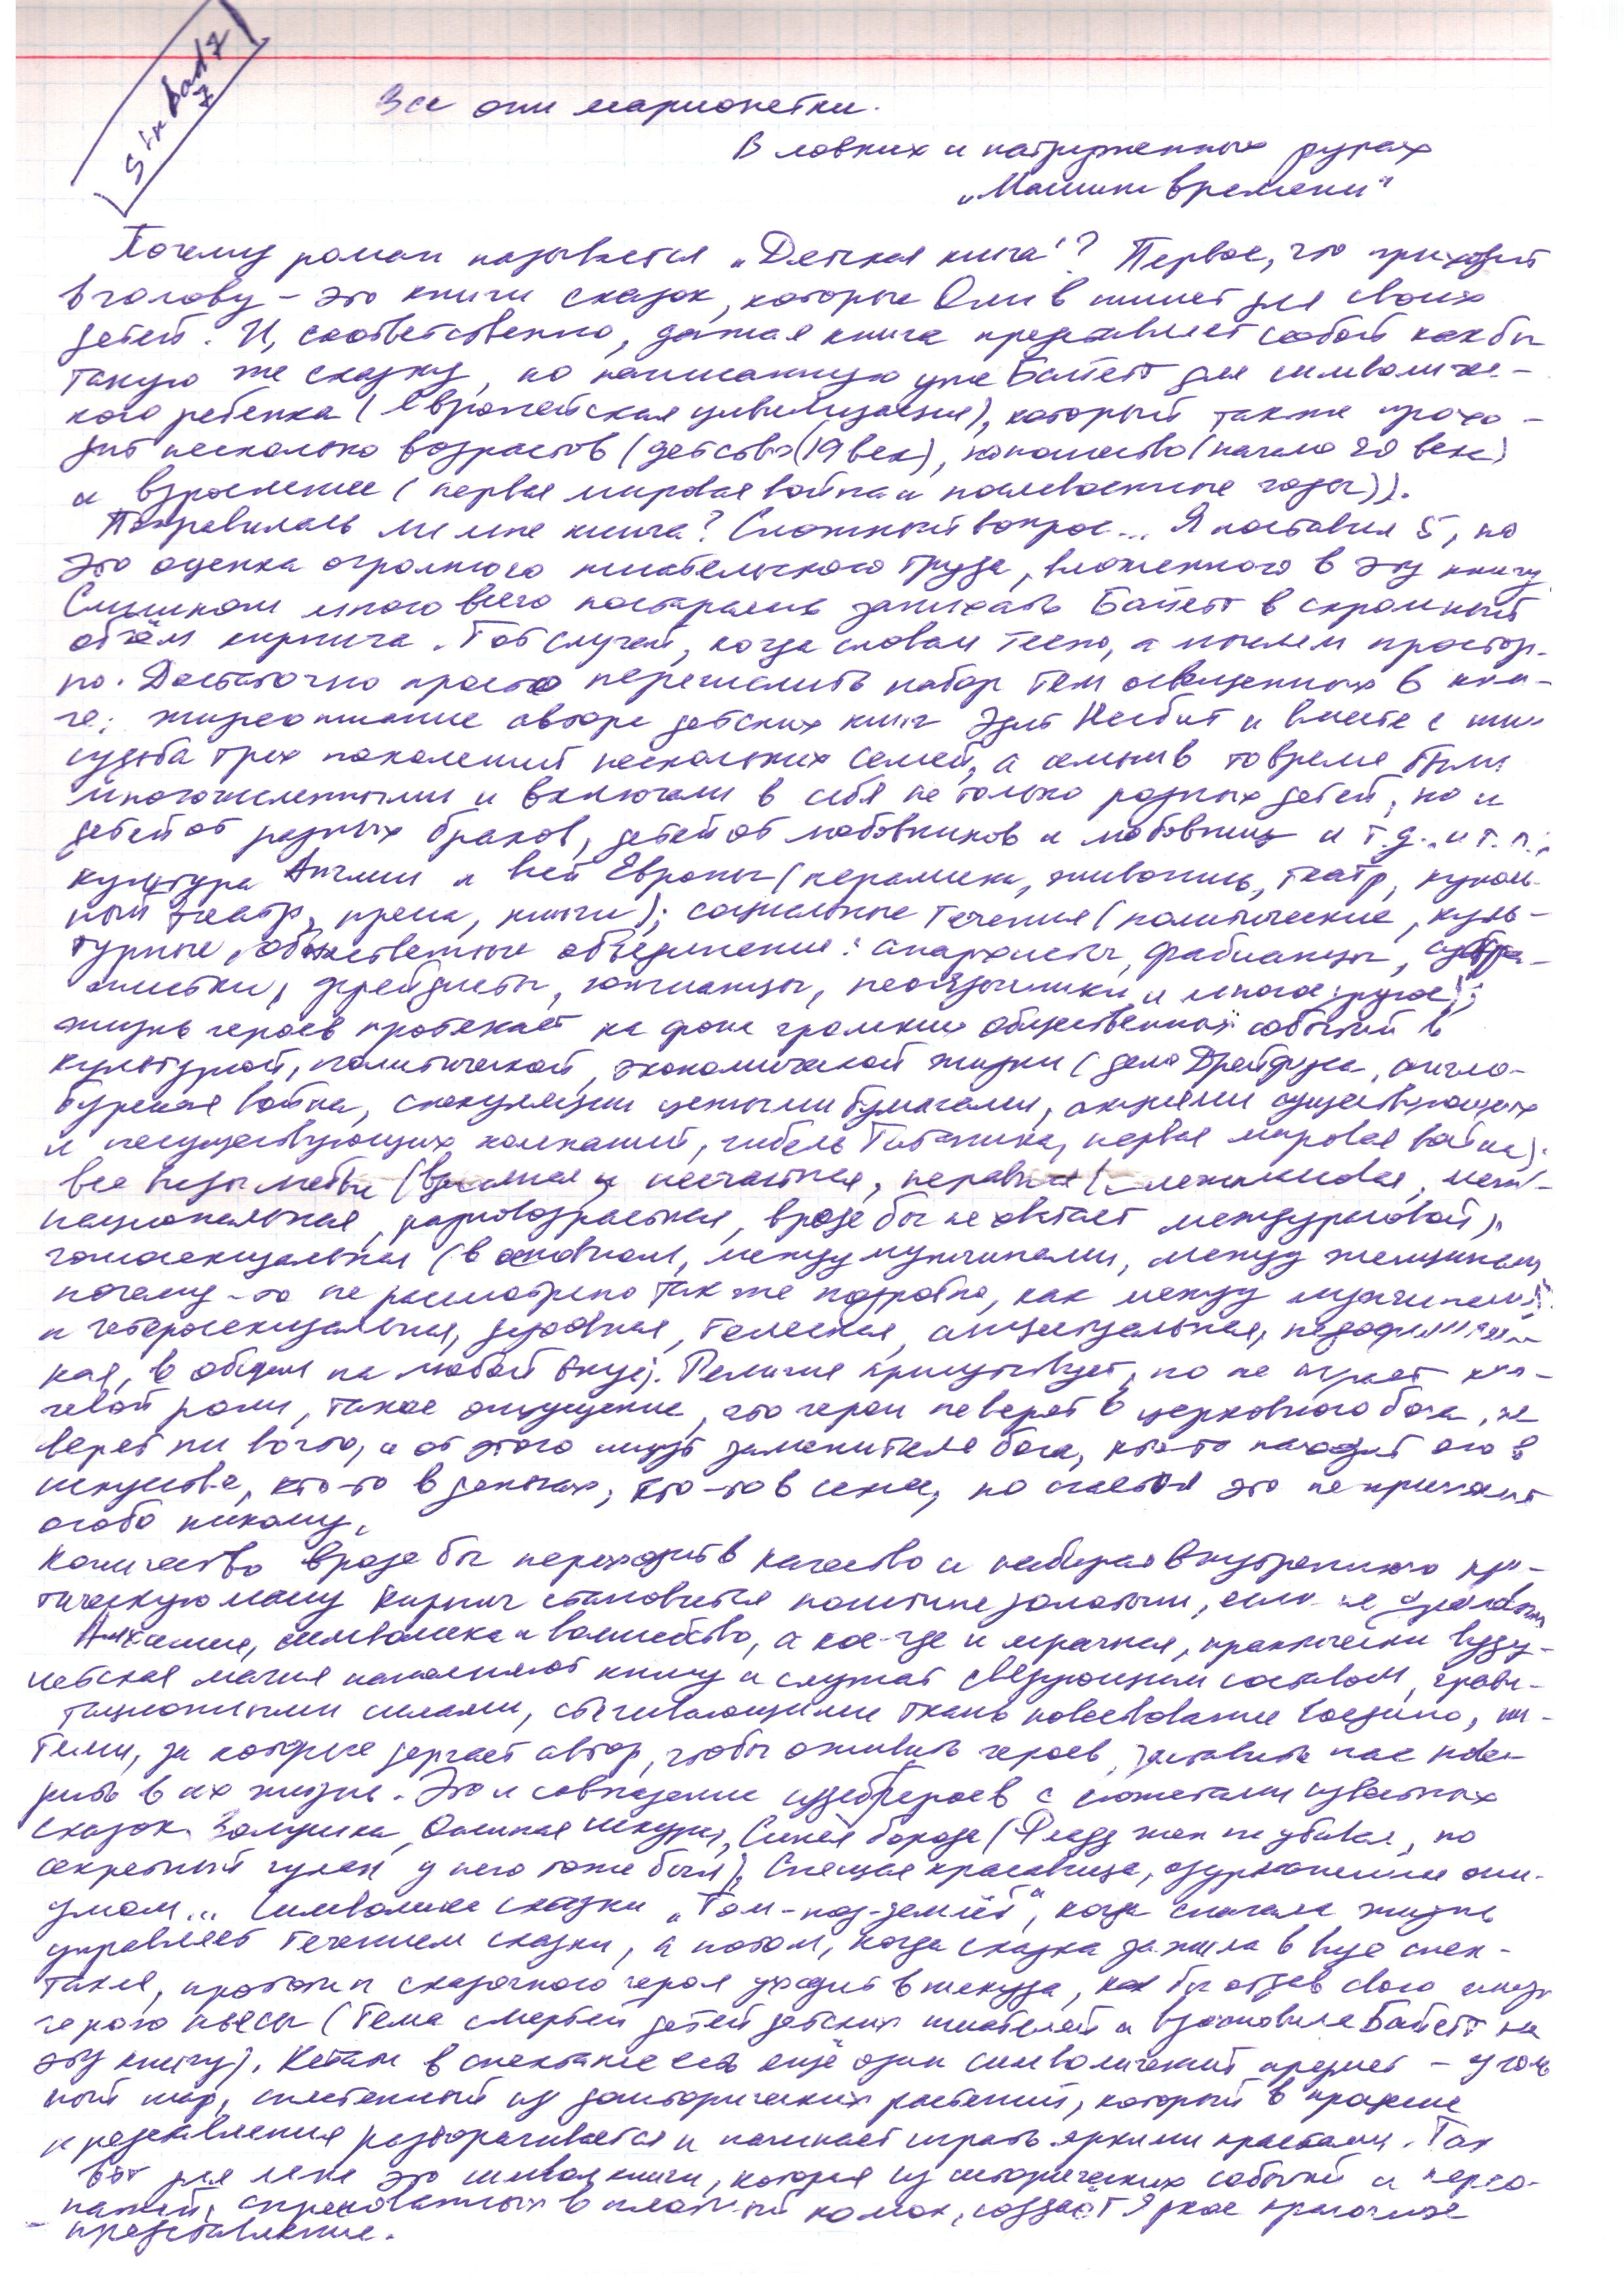 Sinbad7
Все они марионетки.
В ловких и натруженных руках
„Машина времени“
Почему роман называется „Детская книга“? Первое, что приходит
в голову – это книги сказок, которые Олив пишет для своих
детей. И, соответственно, данная книга представляет собой как бы
такую же сказку, но написанную уже Байетт для символичес-
кого ребенка (европейская цивилизация), который также прохо-
дит несколько возрастов (детство (19 век), юношество (начало 20 века)
и взросление (первая мировая война и послевоенные годы)).
Понравилась ли мне книга? Сложный вопрос... Я поставил 5, но
это оценка огромного писательского труда, вложенного в эту книгу.
Слишком много всего постаралась запихать Байетт в скромный
объём кирпича. Тот случай, когда словам тесно, а мыслям простор-
но. Достаточно просто перечислить набор тем освещенных в кни-
ге: жизнеописание автора детских книг Эдит Несбит и вместе с ним
судьба трех поколений нескольких семей, а семьи в то время были
многочисленными и включали в себя не только родных детей, но и
детей от разных браков, детей от любовников и любовниц и т.д. и т.п.;
культура Англии и всей Европы (керамика, живопись, театр, куколь-
ный театр, проза, книги); социальные течения (политические, куль-
турные, общественные объединения: анархисты, фабианцы, суфра-
жистки, фрейдисты, юнгианцы, неоязычники и многое другое);
жизнь героев протекает на фоне громких общественных событий в
культурной, политической, экономической жизни (дело Дрейфуса, англо-
бурская война, спекуляции ценными бумагами, акциями существующих
и несуществующих компаний, гибель Титаника, первая мировая война);
все виды любви (взаимная и несчастная, неравная (межклассовая, меж-
национальная, разновозрастная, вроде бы не хватает междурасовой),
гомосексуальная (в основном, между мужчинами, между женщинами
почему-то не рассмотрено так же подробно, как между мужчинами)
и гетеросексуальная, духовная, телесная, инцестуальная, педофиличес-
кая, в общем на любой вкус). Религия присутствует, но не играет клю-
чевой роли, такое ощущение, что герои не верят в церковного бога, не
верят ни во что, и от этого ищут заменителя бога, кто-то находит его в
искусстве, кто-то в деньгах, кто-то в сексе, но счастья это не приносит
особо никому.
Количество вроде бы переходит в качество и набирая внутреннюю кри-
тическую массу кирпич становится поистине золотым, если не
Алхимия, символика и волшебство, а кое-где и мрачная, практически вуду-
истская магия наполняют книгу и служат связующим составом, грави-
тационными силами, стягивающими ткань повествования воедино, ни-
тями, за которые дергает автор, чтобы оживить героев, заставить нас пове-
рить в их жизнь. Это и совпадение судеб героев с сюжетами известных
сказок Золушка, Ослиная шкура, Синяя борода (Фладд жен не убивал, но
секретный чулан у него тоже был), Спящая красавица, одурманенная опи-
умом... Символика сказки „Том-под-землёй“, когда сначала жизнь
управляет течением сказки, а потом, когда сказка зажила в виде спек-
такля, прототип сказочного героя уходит в никуда, как бы отдав свою жизнь
герою пьесы (Тема смертей детей детских писателей и вдохновила Байетт на
эту книгу). Кстати в спектакле есть ещё один символический предмет – уголь-
ный шар, сплетенный из доисторических растений, который в процессе
представления разворачивается и начинает играть яркими красками. Так
вот для меня это символ книги, которая из исторических событий и персо-
нажей, спрессованных в плотный комок, создаёт яркое красочное
представление.